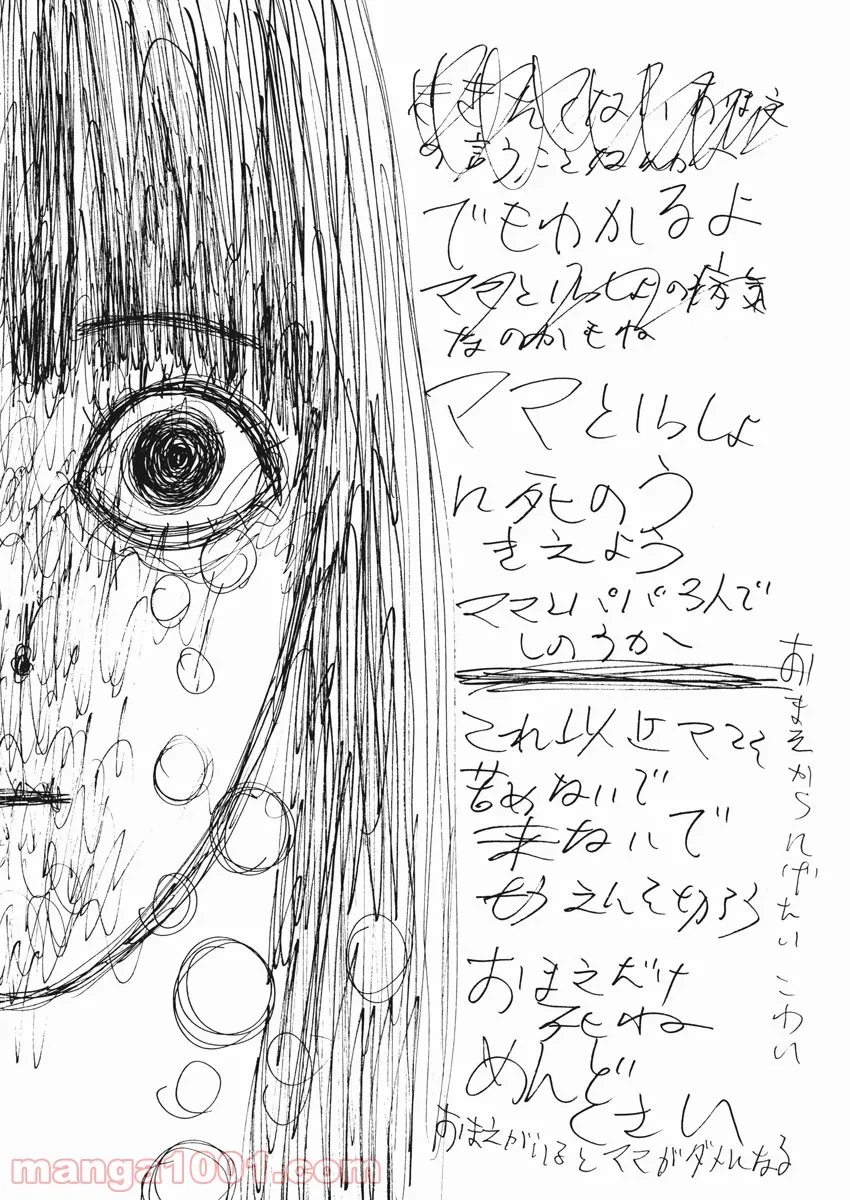 でもわかるよ
ママといっしょの病気
なのかもね
ママといっしょ
に死のう
きえよう
ママとパパ3人で
しのうか
これ以上ママを
苦めないで
来ないで
えんを切ろう
おまえだけ
死ね
めんど
くさい
おまえがいるとママがダメになる
おまえからにげたい こわい
manga1001.com